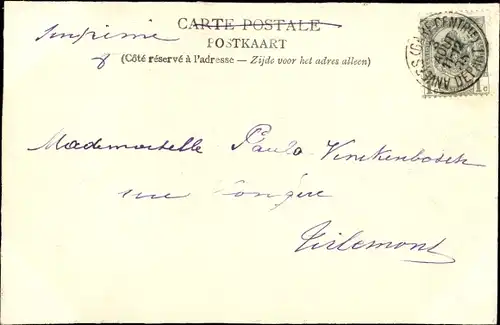 CARTE POSTALE
Imprimé
POSTKAART
(Côté réservé à l'adresse — Zijde voor het adres alleen)
ANVERS (GARE CENTRALE)
1c
Mademoiselle Paula Vinckenbosch
rue
Tirlemont